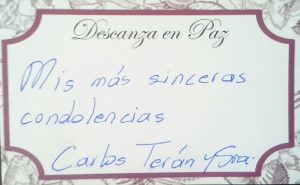 Descanza en Paz
Mis más sinceras
condolencias
Carlos Terán y Sra.